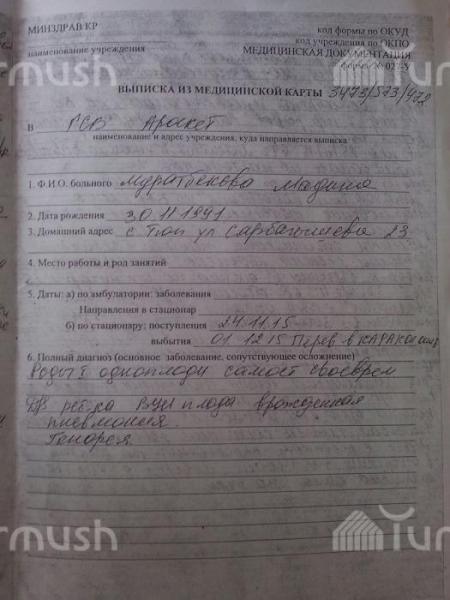 МИНЗДРАВ КР
код формы по ОКУД
код учреждения по ОКПО
наименование учреждения
МЕДИЦИНСКАЯ ДОКУМЕНТАЦИЯ
ВЫПИСКА ИЗ МЕДИЦИНСКОЙ КАРТЫ 3473/573/472
В
наименование и адрес учреждения, куда направляется выписка
1. Ф.И.О. больного Муратбекова Мадина
2. Дата рождения 30 11 1991
3. Домашний адрес с Тюп ул Сарбагышева 23
4. Место работы и род занятий
5. Даты: а) по амбулатории: заболевания
Направления в стационар
б) по стационару: поступления 24.11.15
выбытия 01 12 15 Перев в Каракол
6. Полный диагноз (основное заболевание, сопутствующее осложнение)
Роды I одноплодн самост своеврем
ребка ВУИ плода врожденная
пневмония
Гонорея
Turmush